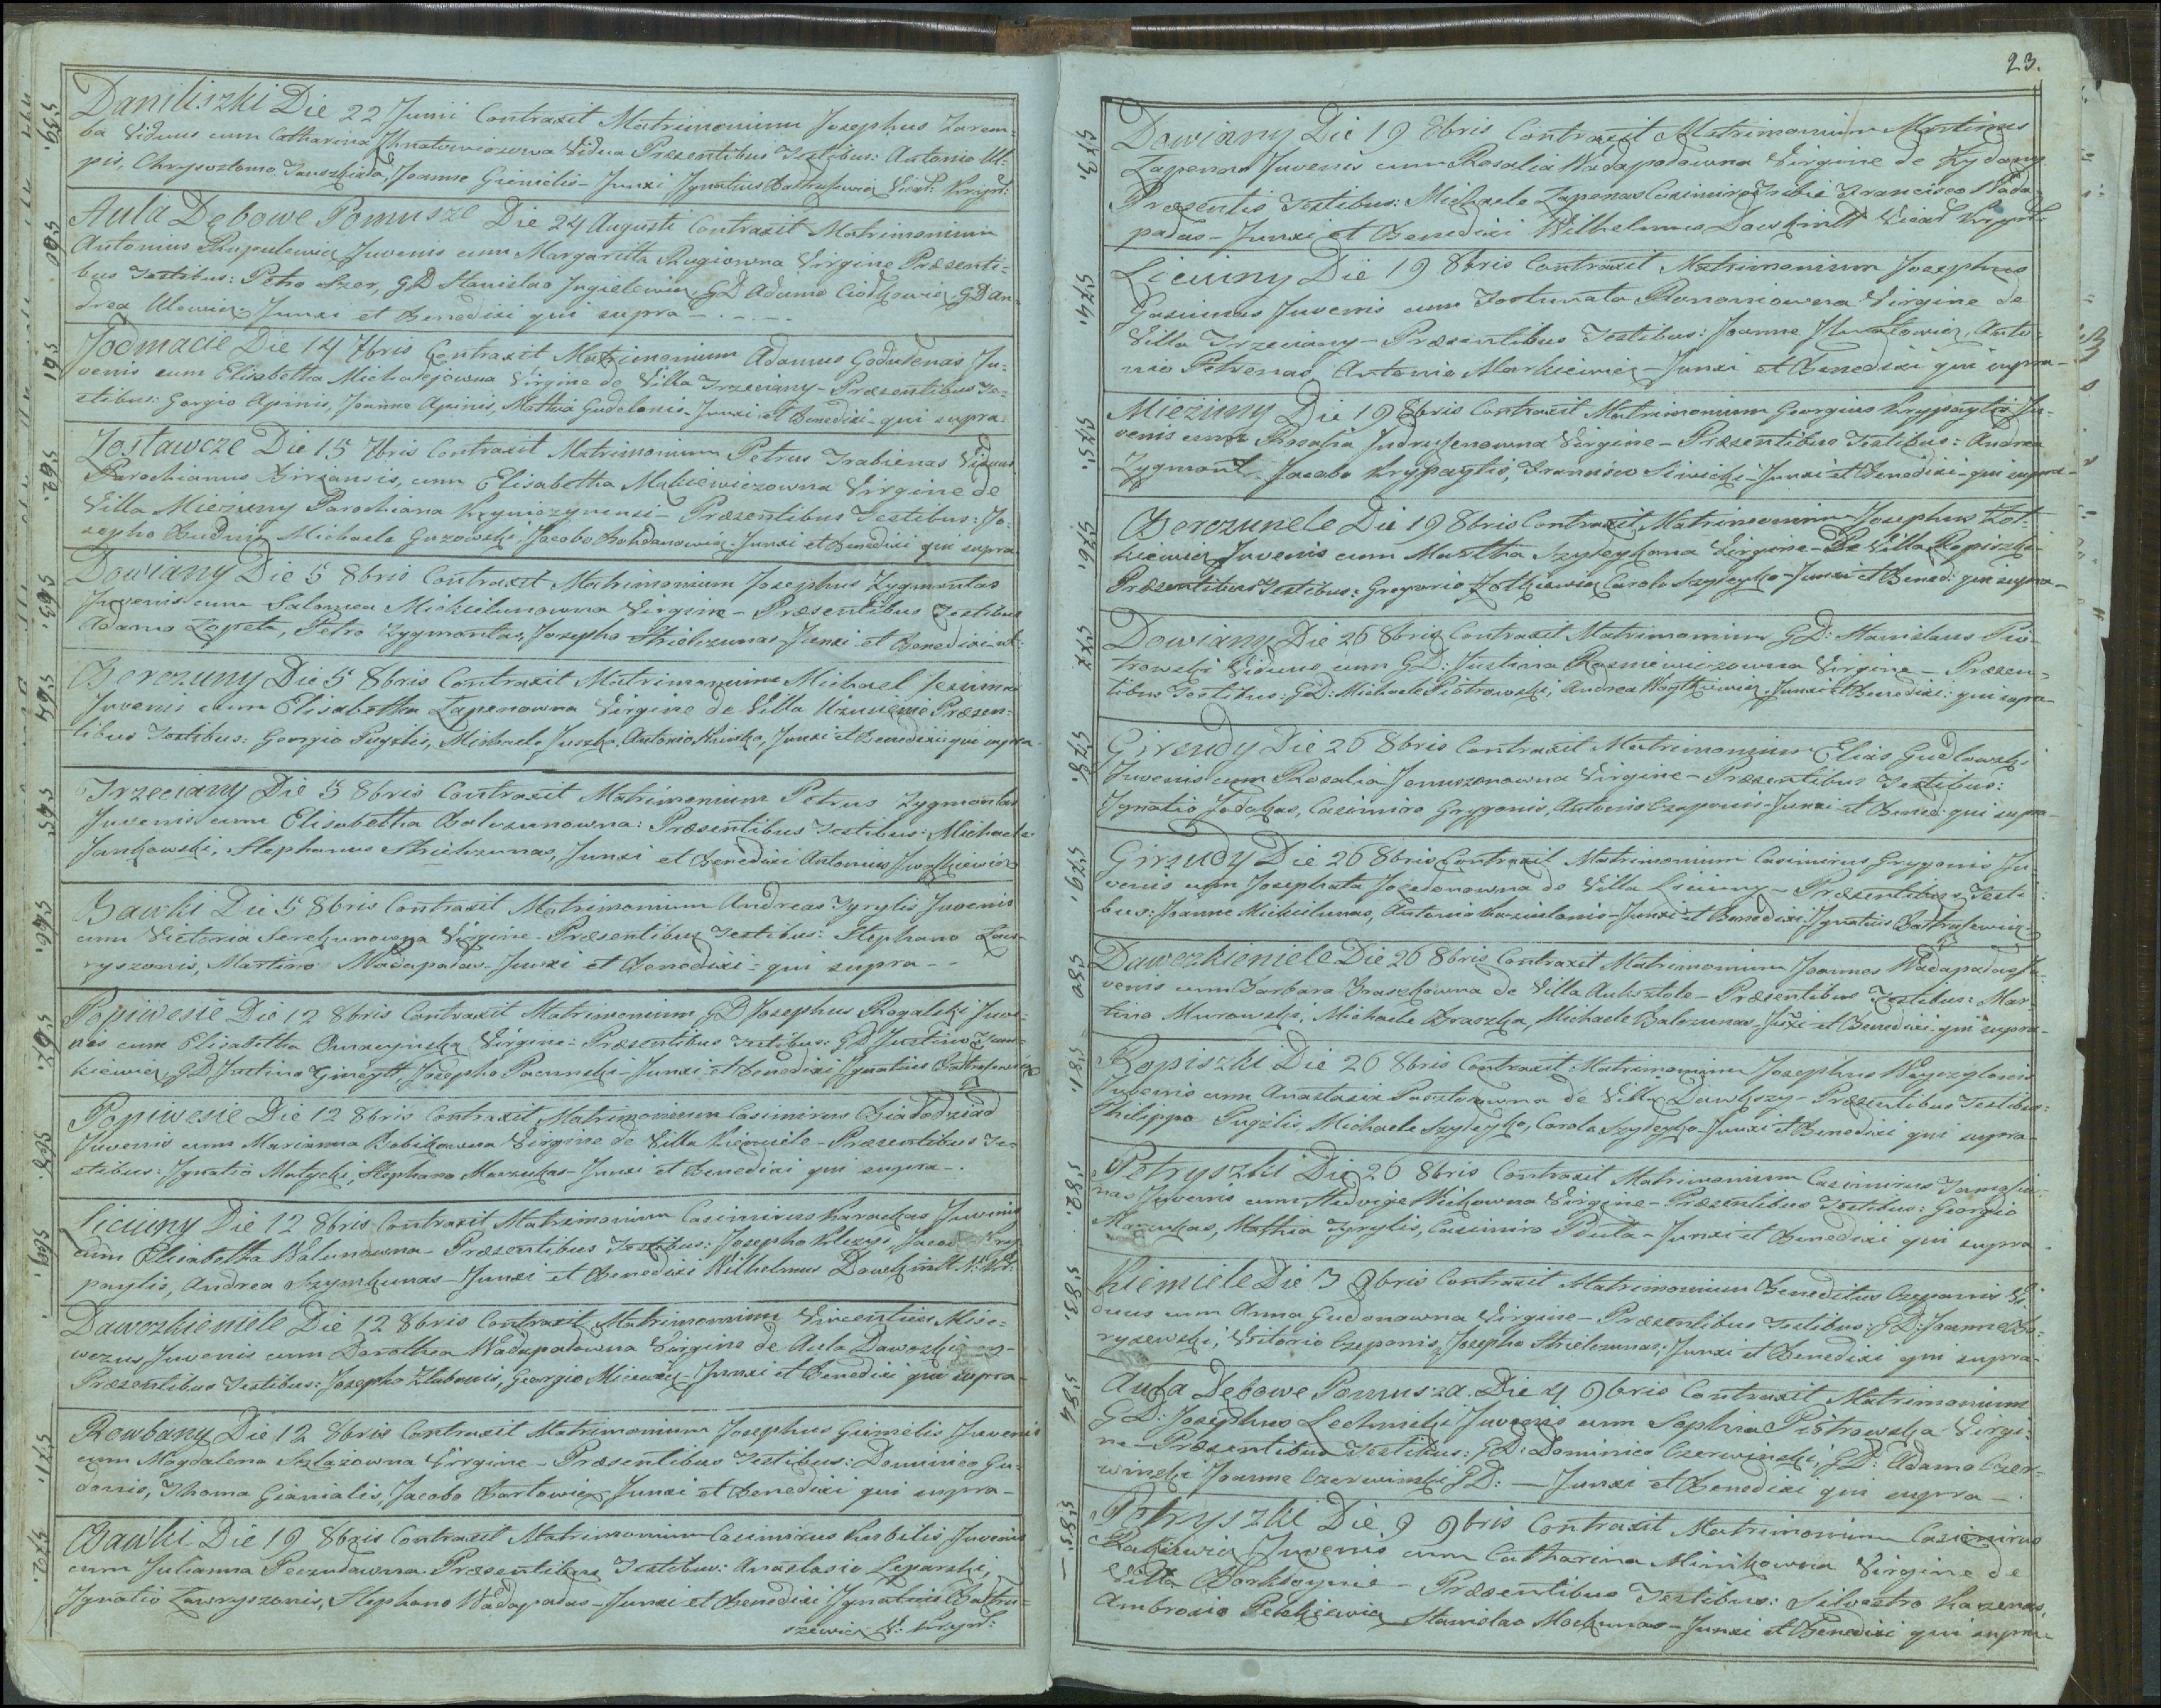 559.
Daniliszki Die 22 Junii Contraxit Matrimonium Josephus Zarem-
ba Viduus cum Catharina Vidua Præsentibus Testibus: Antonio Ul-
pis, Chrysostomo Joanne Gienielis - Junxi Ignatius Batruszewicz Vicar: Krynd:
560
Aula Dębowe Pomusze Die 24 Augusti Contraxit Matrimonium
Antonius Juvenis cum Margaritta Rugiowna Virgine Præsenti-
bus Testibus: Petro Szer, GD Stanislao GD Adamo GD An-
drea Ulewicz Junxi et Benedixi qui supra -
561
Jodmacie Die 14 7bris Contraxit Matrimonium Adamus Godulenas Ju-
venis cum Elisabetha Michalejowna Virgine de Villa Trzeciany - Præsentibus Te-
stibus: Gorgio Apinis, Joanne Apinis, Mathia Gudelonis - Junxi et Benedixi - qui supra:
562.
Zostawcze Die 15 7bris Contraxit Matrimonium Petrus Trabienas Viduus
Parochianus Birżansis, cum Elisabetha Mackiewiczowna Virgine de
Villa Mieziuny Parochiana - Præsentibus Testibus: Jo-
sepho Michaele Guzowski, Jacobo Bohdanowicz - Junxi et Benedixi qui supra
563.
Dowiany Die 5 8bris Contraxit Matrimonium Josephus Zygmontas
Juvenis cum Salomea Mickielunowna Virgine - Præsentibus Testibus
Adamo Lopeta, Petro Zygmontas, Josepho Strielczunas - Junxi et Benedixi - ut:
564
Berczuny Die 5 8bris Contraxit Matrimonium Michael
Juvenis cum Elisabetha Łapenowna Virgine de Villa Præsen-
tibus Testibus: Georgio Pugzlis, Michaele Juszka, Antonio Junxi et Benedixi qui supra -
565.
Trzeciany Die 5 8bris Contraxit Matrimonium Petrus Zygmontas
Juvenis cum Elisabetha Balczunowna: Præsentibus Testibus: Michaele
Jankowski, Stephanus Strielczunas, Junxi et Benedixi Antonius
566.
Bawki Die 5 8bris Contraxit Matrimonium Andreas Tyrylis Juvenis
cum Victoria Virgine - Præsentibus Testibus: Stephano Law-
ryszonis, Martino Wadapadas - Junxi et Benedixi - qui supra -
567.
Popiwesie Die 12 8bris Contraxit Matrimonium GD Josephus Rogalski Juve-
nis cum Elisabetha Virgine: Præsentibus Testibus: GD Justino Jan-
kiewicz, GD Justino Gineytt, Josepho Pacunski - Junxi et Benedixi Ignatius Batruszewicz
568.
Popiwesie Die 12 8bris Contraxit Matrimonium Casimirus Białodziad
Juvenis cum Marianna Bobikowna Virgine de Villa Kiemiele - Præsentibus Te-
stibus: Ignatio Matycki, Stephano Marzukas - Junxi et Benedixi qui supra -
569.
Liciuny Die 12 8bris Contraxit Matrimonium Casimirus Karackas Juvenis
cum Elisabetha Walunowna - Præsentibus Testibus: Josepho Klizys, Jacobo Kry-
paytis, Andrea Szymkunas - Junxi et Benedixi Wilhelmus Dowkintt
Dawczkieniele Die 12 8bris Contraxit Matrimonium Vincentius Mice-
wczus Juvenis cum Dorothea Wadapalowna Virgine de Aula
Præsentibus Testibus: Josepho Zlabowis, Georgio Micewicz - Junxi et Benedixi qui supra -
571.
Rowbany Die 12 8bris Contraxit Matrimonium Josephus Giemelis Juvenis
cum Magdalena Szlazowna Virgine - Præsentibus Testibus: Dominico Gu-
donis, Thoma Gianialis, Jacobo Bartowicz Junxi et Benedixi qui supra -
572.
Bawki Die 19 8bris Contraxit Matrimonium Casimirus Kurbilis Juvenis
cum Julianna Peczudawna. Præsentibus Testibus: Anastasio Leparski,
Ignatio Lawryszonis, Stephano Wadapadas - Junxi et Benedixi Ignatius Batru-
szewicz V: Krynd:
23.
573.
Dowiany Die 19 8bris Contraxit Matrimonium Martinus
Łapenas Juvenis cum Rosalia Wadapadawna Virgine de Zydany
Præsentis Testibus: Michaele Łapenas Casimiro Tribis Francisco Wada-
padas - Junxi et Benedixi Wilhelmus Dowkintt Vicar Krynd:
574.
Liciuny Die 19 8bris Contraxit Matrimonium Josephus
Gasiunas Juvenis cum Fortunata Romaniowna Virgine de
Villa Trzeciany - Præsentibus Testibus: Joanne Anto-
nio Petrenas, Antonio Markiewicz - Junxi et Benedixi qui supra -
575.
Mieziuny Die 19 8bris Contraxit Matrimonium Georgius Krypaytis Ju-
venis cum Rosalia Virgine - Præsentibus Testibus: Andrea
Zygmont Jacobo Krypaytis, Francisco Siwicki - Junxi et Benedixi - qui supra -
576.
Berczunele Die 19 8bris Contraxit Matrimonium Josephus Żoł-
kiewicz Juvenis cum Martha Szyleykona Virgine - De Villa Ropiszki
Præsentibus Testibus: Gregorio Żołkiewicz Carolo Szyleyko - Junxi et Bened: qui supra -
577
Dowiany Die 26 8bris Contraxit Matrimonium GD: Stanislaus Pio-
trowski Viduus cum GD: Justina Rosniewiczowna Virgine - Præsen-
tibus Testibus: GD: Michaele Piotrowski, Andrea Woytkiewicz, Junxi et Benedixi: qui supra -
578.
Girsudy Die 26 8bris Contraxit Matrimonium Elias Gudlowski
Juvenis cum Rosalia Januszonowna Virgine - Præsentibus Testibus:
Ignatio Jodokas, Casimiro Grygonis, Antonio Czeponis - Junxi et Bened: qui supra -
579.
Girsudy Die 26 8bris Contraxit Matrimonium Casimirus Grygonis Ju-
venis cum Josephata Jozedonowna de Villa Liciuny - Præsentibus Testi-
bus: Joanne Mickielunas, Antonio Kurzielonis - Junxi et Benedixi Ignatius Batruszewicz
580
Dawczkieniele Die 26 8bris Contraxit Matrimonium Joannes Wadapadas Ju-
venis cum Barbara Braszkowna de Villa Auksztole - Præsentibus Testibus: Mar-
tino Murowski, Michaele Braszka, Michaele Balczunas, Junxi et Benedixi - qui supra -
581.
Ropiszki Die 26 8bris Contraxit Matrimonium Josephus
Juvenis cum Anastasia de Villa Dawkszy - Præsentibus Testibus:
Philippo Pugzlis, Michaele Szyleyko, Carolo Szyleyko - Junxi et Benedixi qui supra -
582.
Petryszki Die 26 8bris Contraxit Matrimonium Casimirus Tamasiu-
nas Juvenis cum Hedvige Wickowna Virgine - Præsentibus Testibus: Georgio
Marzukas, Mathia Tyrylis, Casimiro Pduta - Junxi et Benedixi qui supra -
583.
Kiemiele Die 3 9bris Contraxit Matrimonium Benedictus Czeponis Vi-
duus cum Anna Gudonowna Virgine - Præsentibus Testibus: GD: Joanne Bo-
ryszewski, Antonio Czeponis, Josepho Strielczunas; Junxi et Benedixi qui supra -
584
Aula Dębowe Pomusza. Die 4 9bris Contraxit Matrimonium
GD: Josephus Lechnicki Juvenis cum Sophia Piotrowska Virgi-
ne - Præsentibus Testibus: GD: Dominico Czerwinski, GD: Adamo Czer-
winski Joanne Czerwinski GD: - Junxi et Benedixi qui supra -
585.
Petryszki Die 9 9bris Contraxit Matrimonium Casimirus
Rakiewicz Juvenis cum Catharina Minikowna Virgine de
Villa - Præsentibus Testibus: Silvestro Kazenas,
Ambrosio Petkiewicz Stanislao Mockunas - Junxi et Benedixi qui supra -